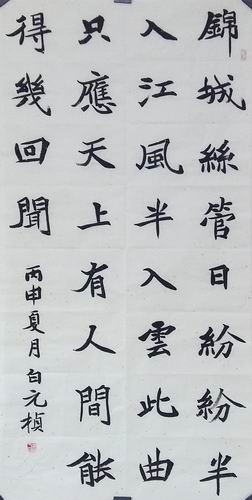 錦城絲管日紛紛半
入江風半入雲此曲
只應天上有人間能
得幾回聞
丙申夏月白元楨